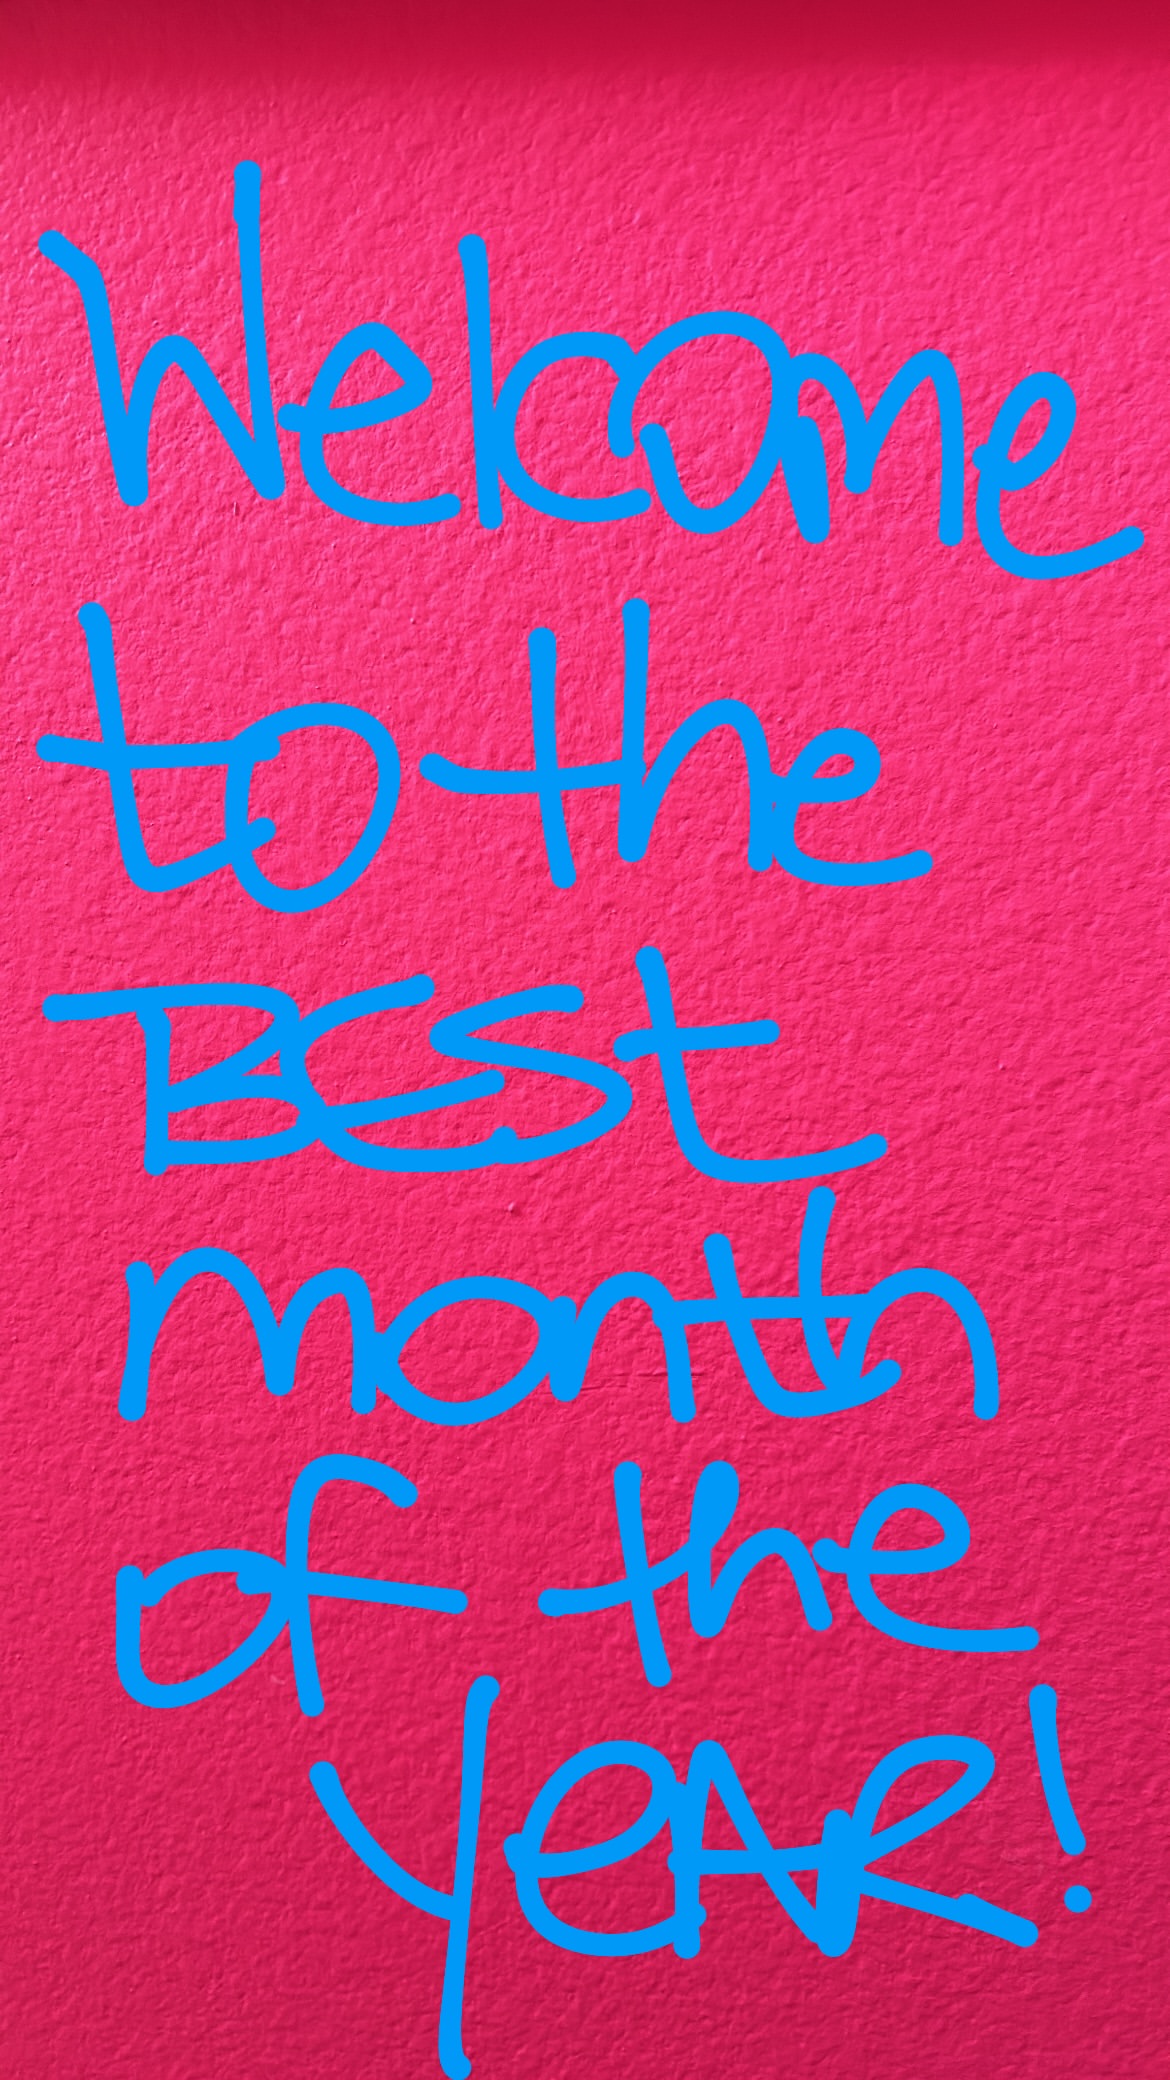 Welcome
to the
BEst
month
of the
yeAR!